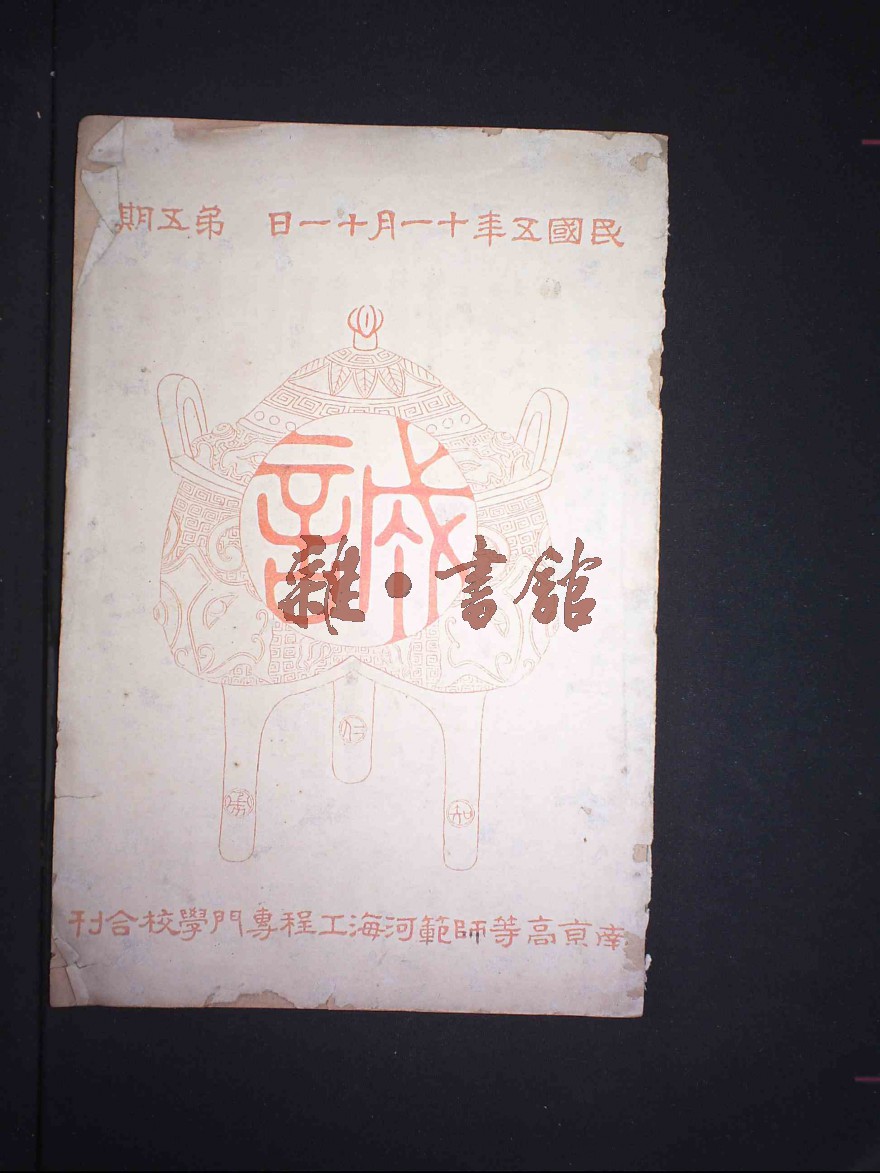 民國五年十一月十一日 弟五期
誠
雜·書館
仁
勇
知
南京高等師範河海工程專門學校合刊